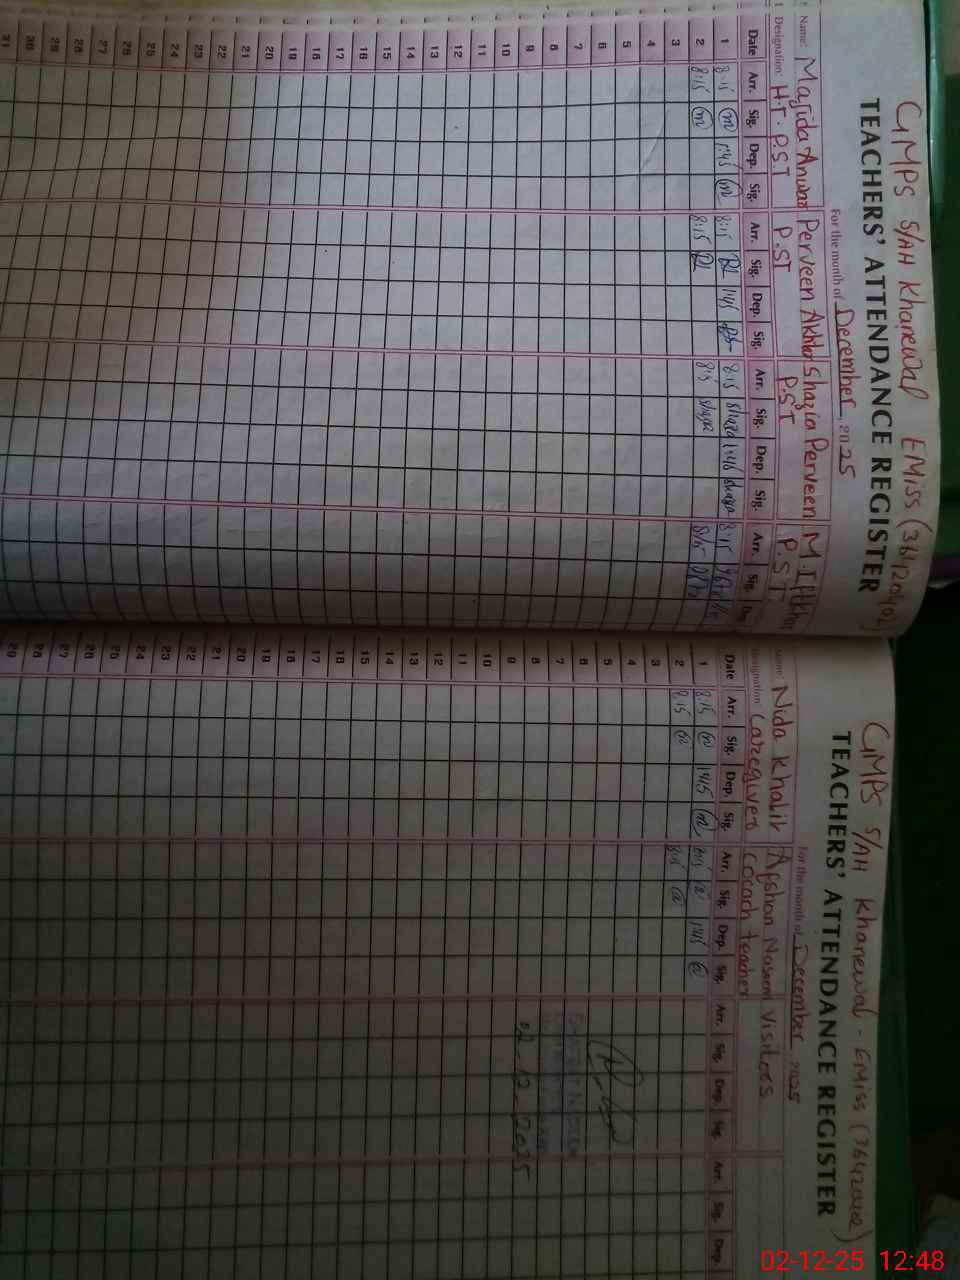 GMPS S/AH Khanewal EMiss (36420402)
TEACHERS' ATTENDANCE REGISTER
For the month of December, 2025
Name: Majida Anwar Perveen Akhtar Shazia Perveen M. Iftkhar
Designation: H.T. P.S.T P.ST P.ST P.S.T
Date Arr. Sig. Dep. Sig. Arr. Sig. Dep. Sig. Arr. Sig. Dep. Sig. Arr. Sig.
1 8:15 m 1:45 m 8:15 1:45 8:15 1:45 8:15
2 8:15 m 8:15 8:15 8:15
3
4
5
6
7
8
9
10
11
12
13
14
15
16
17
18
19
20
21
22
23
24
25
26
27
28
29
30
31
GMPS S/AH Khanewal - EMiss (36420402)
TEACHERS' ATTENDANCE REGISTER
For the month of December, 2025
Name: Nida Khalil Afshan Naseem Visitors
Designation: Caregiver Cocach teacher
Date Arr. Sig. Dep. Sig. Arr. Sig. Dep. Sig. Arr. Sig. Dep. Sig. Arr. Sig. Dep.
1 8:15 n 1:45 n 8:15 a 1:45 a
2 8:15 n 8:15 a
3
4
5
6
7
8
9
10
11
12
13
14
15
16
17
18
19
20
21
22
23
24
25
26
27
28
29
02-12-2025
02-12-25 12:48